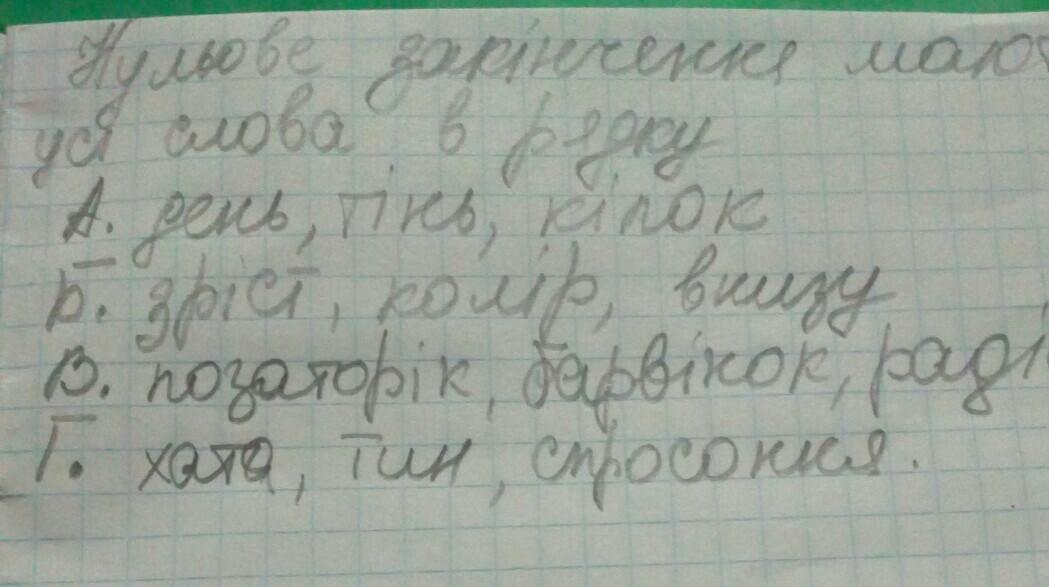 Нульове закінчення мают
усі слова в рядку
А. день, тінь, кілок
Б. зріст, колір, внизу
В. позаторік, барвінок, раді
Г. хата, тин, спросоння.